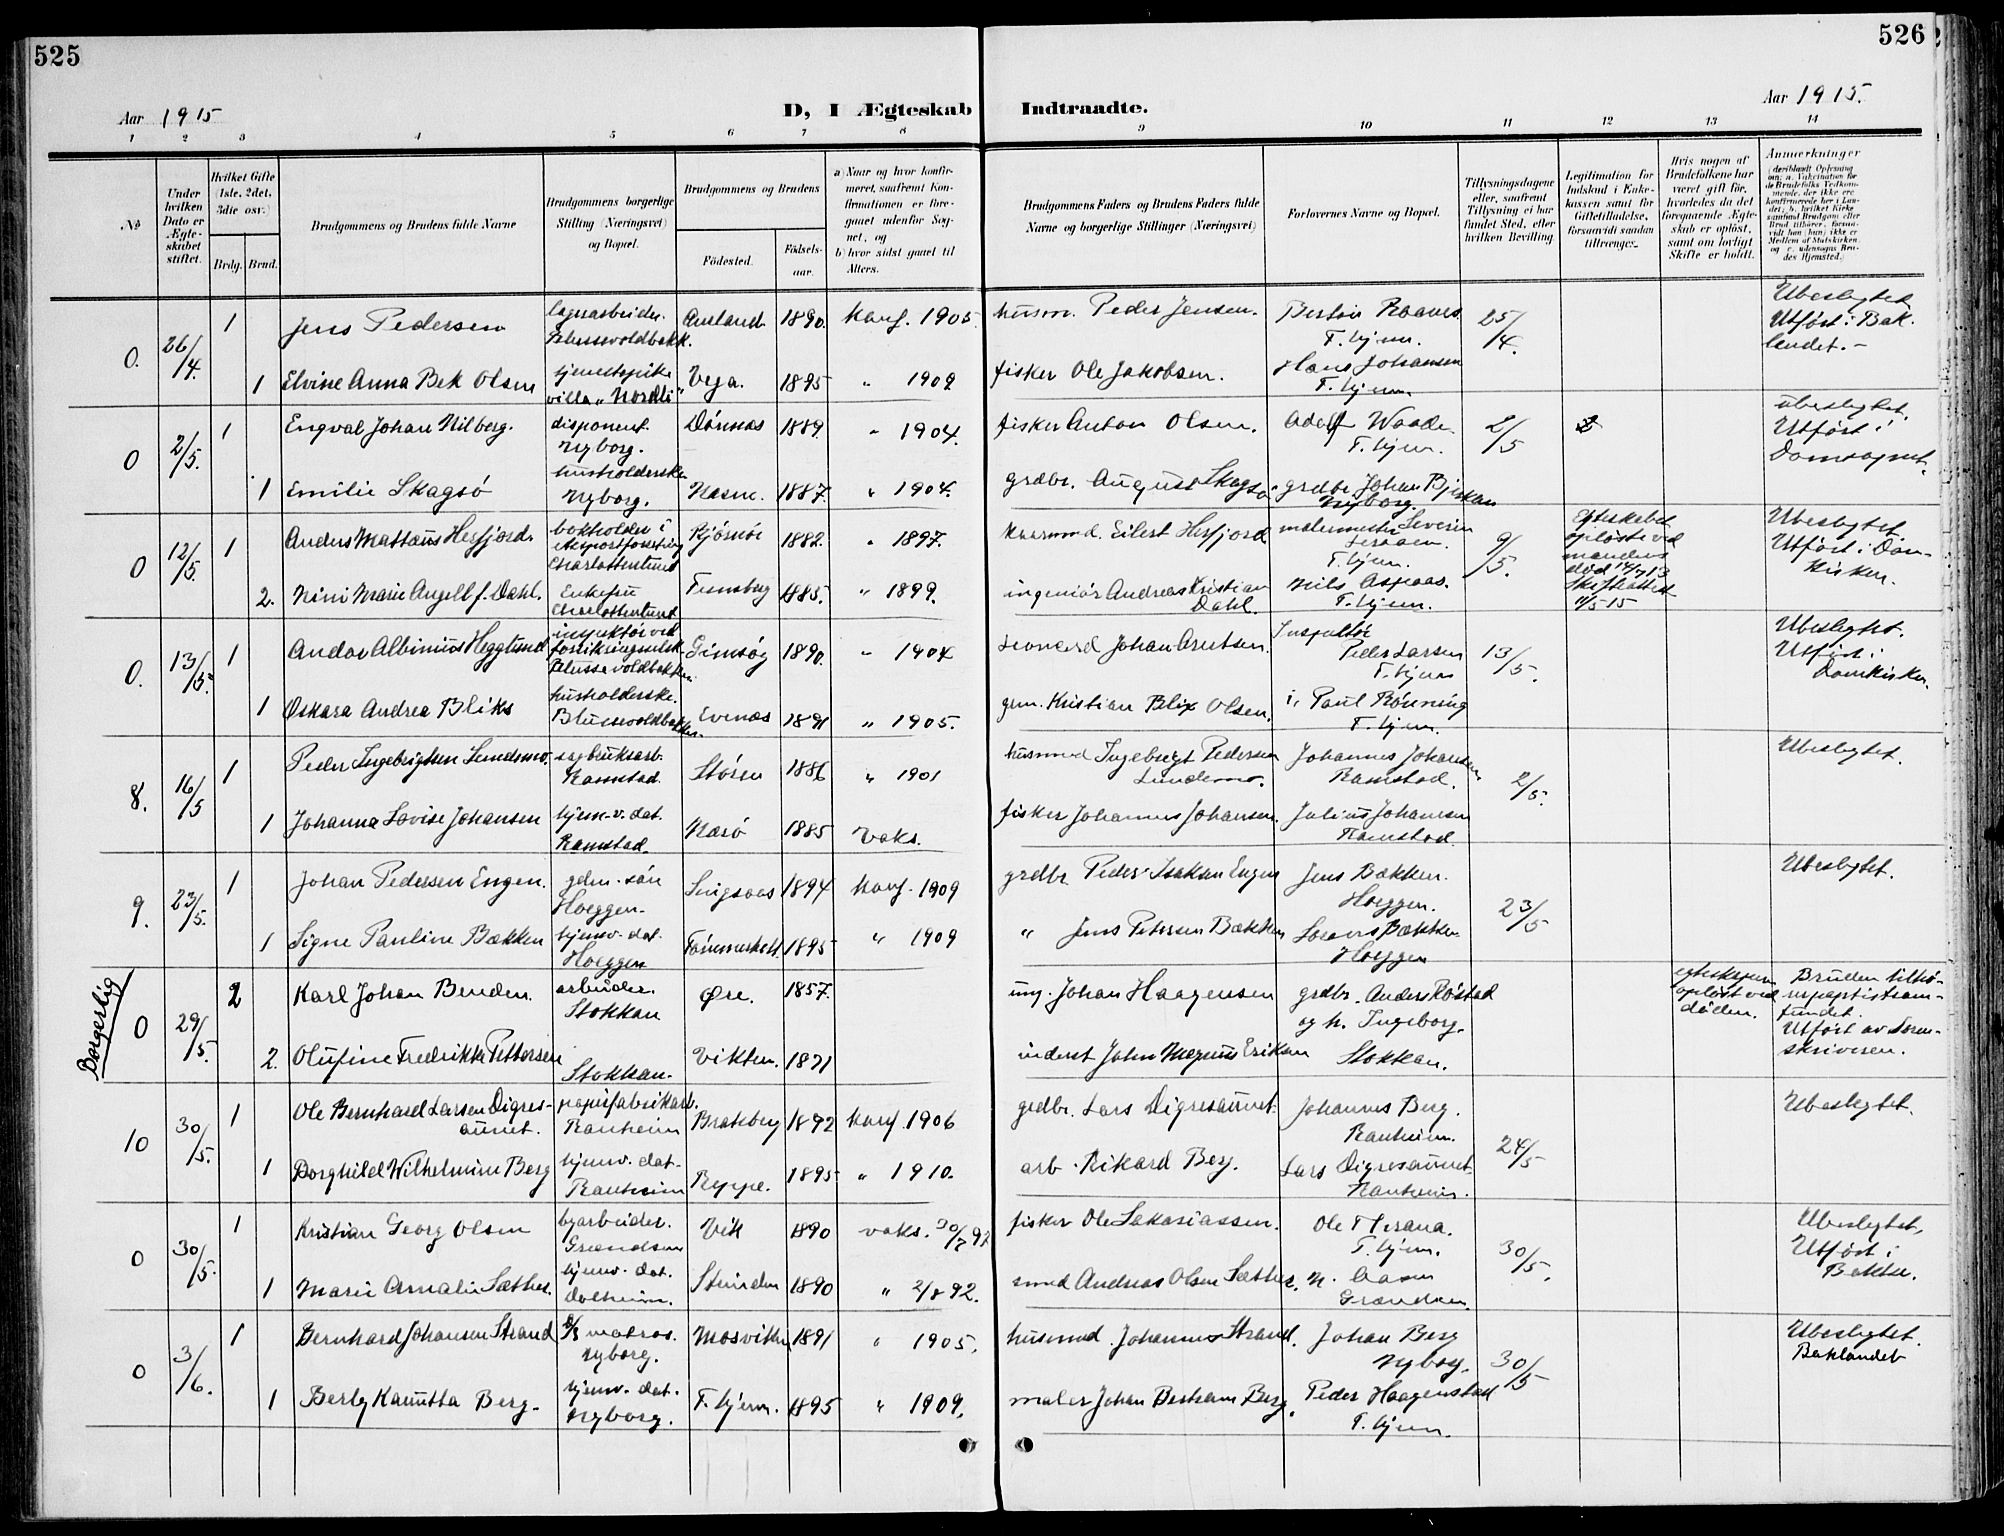 525
526
Aar 1915
D, I Ægteskab Indtraadte.
Aar 1915.
1 2 3 4 5 6 7 8 9 10 11 12 13 14
No
Under hvilken Dato er Ægteskabet stiftet.
Hvilket Gifte (1ste, 2det, 3die osv.)
Brdg. Brud.
Brudgommens og Brudens fulde Navne
Brudgommens borgerlige Stilling (Næringsvei) og Bopæl.
Brudgommens og Brudens
Fødested.
Fødsels-aar.
a) Naar og hvor konfirmeret, saafremt Konfirmationen er foregaaet udenfor Sognet, og
b) hvor sidst gaaet til Alters.
Brudgommens Faders og Brudens Faders fulde Navne og borgerlige Stillinger (Næringsvei)
Forlovernes Navne og Bopæl.
Tillysningsdagene eller, saafremt Tillysning ei har fundet Sted, efter hvilken Bevilling.
Legitimation for Indskud i Enkekassen samt for Giftetilladelse, forsaavidt saadan tiltrænges.
Hvis nogen af Brudefolkene har været gift før, hvorledes da det foregaaende Ægteskab er opløst, samt om lovligt Skifte er holdt.
Anmerkninger
0. 26/4. 1 Jens Pedersen lagerarbeider. Ausland. 1890. Konf. 1905. husm. Peder Jensen. T. hjem. 25/4. Ubeslegtet. Utført i Baklandet.-
1 Elvine Anna Bek Olsen villa "Nordli" Vega. 1895 " 1909 fisker Ole Jakobsen. Hans Johansen T. hjem.
0 2/5. 1 Engval Johan Nilberg. disponent. Nyborg. Dønnes 1889. " 1904. fisker Anton Olsen. Adolf Waade. T. hjem. 2/5 ubeslegtet. Utført i Domsognet.
1 Emilie Skagsø husholderske Nyborg. Næsne. 1887. " 1904. grdbr. August Skagsø grdbr. Johan Bjerkan Nyborg.
0 12/5. 1 Anders Mattæus Hesfjord. bokholder i Charlottenlund 1882. " 1897. Eilert Hesfjord malermester Severin T. hjem. 9/5. Egteskabet opløst ved mandens død 14/7 13 Skifteattest 11/5-15 Ubeslegtet Utført i Domkirken.
2. Nini Marie Angell f. Dahl. Enkefru Charlottenlund Tunsberg 1885. " 1899. ingeniør Andreas Kristian Dahl. Nils Aspaas. T. hjem.
0. 13/5. 1 Andor Albinius Hegglund inspektør ved Gimsøy 1890. " 1904 Leonard Johan Arntsen. Inspektør Peder Larsen T. hjem 13/5. Ubeslegtet. Utført i Domkirken.
1 Oskara Andrea Bliks husholderske. Blussevoldbakken. Evenæs 1891 " 1905. gm. Kristian Blix Olsen. Paul Rønning T. hjem.
8. 16/5 1 Peder Ingebrigtsen Lundemo. sagbruksarb. Ranstad. Støren 1886 " 1901 husmand Ingebrigt Pedersen Lundemo. Johannes Johansen Ranstad. 2/5. Ubeslegtet.
1 Johanna Lovise Johansen hjem.v. dat. Ranstad. Nærø 1885 vaks. fisker Johannes Johansen. Julius Johansen Ranstad
9. 23/5. 1 Johan Pedersen Engen. gdm. søn Hoeggen. Singsaas 1894 Konf. 1909 grdbr. Peder Isaksen Engen Jens Bækken. Hoeggen. 23/5 Ubeslegtet.
1 Signe Pauline Bækken hjemv. dat. Hoeggen 1895 " 1909 " Jens Petersen Bækken Bækken Hoeggen
Borgerlig 0 29/5. 2 Karl Johan Benden. arbeider. Stokkan Øre. 1857. ung. Johan Haagensen grdbr. Anders Røstad og h. Ingeborg. Stokkan. egteskapene opløst ved døden. Bruden tilhører baptistsamfundet. Utført av Sorenskriveren.
2. Olufine Fredrikke Pettersen Stokkan. Vikten. 1871 inderst John Magnus Eriksen
10 30/5. 1 Ole Bernhard Larsen Digresaunet. papirfabrikarb. Ranheim Bratsberg 1892 Konf. 1906 grdbr. Lars Digresaunet. Johannes Berg. Ranheim. 24/5 Ubeslegtet.
1 Borghild Wilhelmine Berg hjemv. dat. Ranheim Reppe. 1895 " 1910. arb. Rikard Berg. Lars Digresaunet Ranheim.
0 30/5. 1 Kristian Georg Olsen byarbeider. Vik 1890 vaks. 30/7 92 fisker Ole Sakariassen. T. hjem. 30/5. Ubeslegtet. Utført i Bakke.
1 Marie Amalie Sæther. hjemv. dat. Strinden 1890 " 2/8 92. smed Andreas Olsen Sæther.
0 3/6. 1 Bernhard Johansen Strand matros. Nyborg. Mosviken 1891 " 1905. husmnd. Johannes Strand. Johan Berg Nyborg. 30/5 Ubeslegtet. Baklandet
1 Berly Berg. hjemv. dat. Nyborg. T. hjem. 1895 " 1909. maler Johan Bertram Berg. Peder Haagenstad T. hjem.